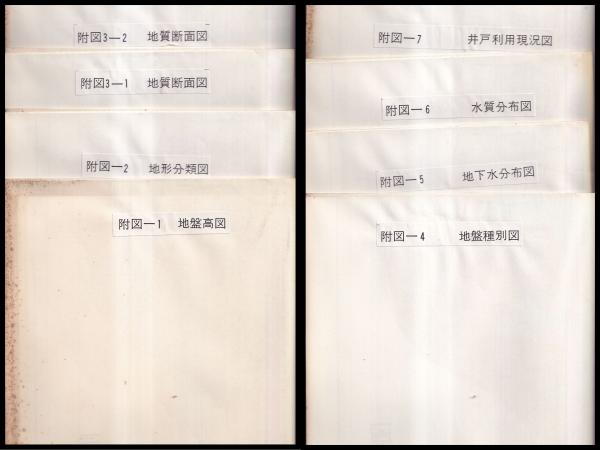 附図3—2 地質断面図
附図3—1 地質断面図
附図—2 地形分類図
附図—1 地盤高図
附図—7 井戸利用現況図
附図—6 水質分布図
附図—5 地下水分布図
附図—4 地盤種別図